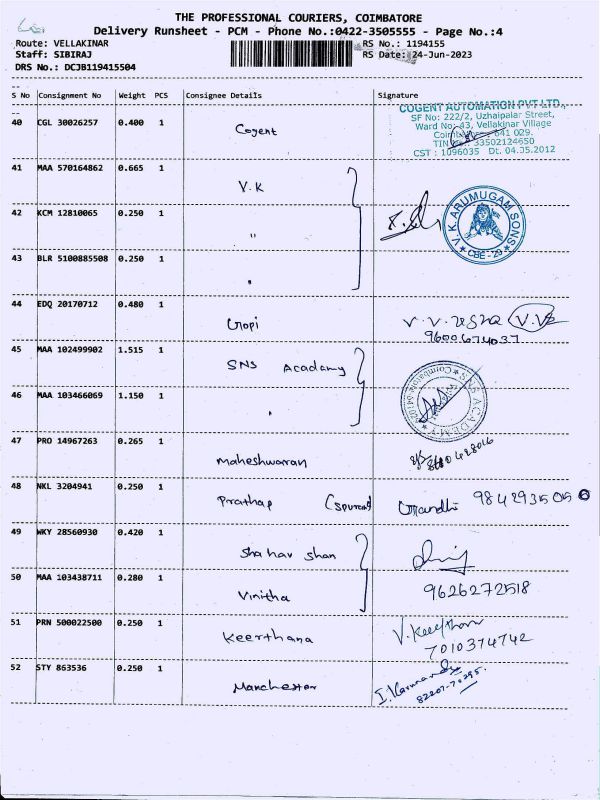 THE PROFESSIONAL COURIERS, COIMBATORE
Delivery Runsheet - PCM - Phone No.:0422-3505555 - Page No.:4
Route: VELLAKINAR
RS No.: 1194155
Staff: SIBIRAJ
RS Date: 24-Jun-2023
DRS No.: DCJB119415504
S No Consignment No Weight PCS Consignee Details Signature
COGENT AUTOMATION PVT LTD.,
SF No: 222/2, Uzhaipalar Street,
Ward No: 43, Vellakinar Village
641 029.
TIN 33502124650
CST : 1096035 Dt. 04.05.2012
40 CGL 30026257 0.400 1 Cogent
41 MAA 570164862 0.665 1 V.K
42 KCM 12810065 0.250 1 "
V.K ARUMUGAM SONS
CBE-29
43 BLR 5100885508 0.250 1 "
44 EDQ 20170712 0.480 1 Gopi
9600674037
45 MAA 102499902 1.515 1 SNS Acadamy
SNS ACADEMY
46 MAA 103466069 1.150 1 "
47 PRO 14967263 0.265 1 Maheshwaran
48 NKL 3204941 0.250 1 Prathap
49 WKY 28560930 0.420 1 Shahav shan
50 MAA 103438711 0.280 1 Vinitha
9626272518
51 PRN 500022500 0.250 1 Keerthana
V.Keerthana
7010374742
52 STY 863536 0.250 1 Manchester
82207-70295.